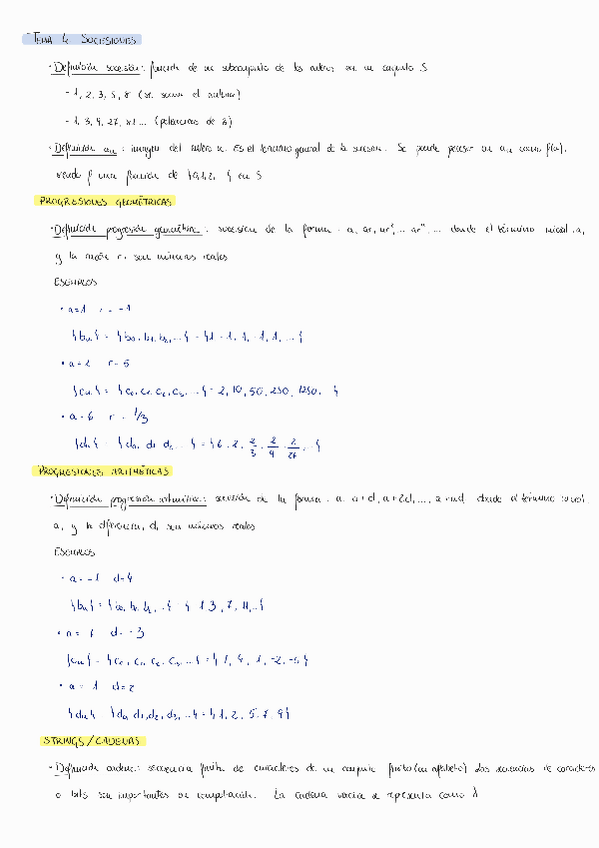 TEMA 4 SUCESIONES
· Definición sucesión: función de un subconjunto de los enteros en un conjunto S
- 1, 2, 3, 5, 8 (se suma el anterior)
- 1, 3, 9, 27, 81 ... (potencias de 3)
· Definición an: imagen del entero n. Es el término general de la sucesión. Se puede pensar en an como f(n),
siendo f una función de {0,1,2, } en S
PROGRESIONES GEOMÉTRICAS
· Definición progresión geométrica: sucesión de la forma a, ar, ar², ... arⁿ, ... donde el término inicial, a,
y la razón r, son números reales
EJEMPLOS
· a=1 r = -1
{bn} = {b0, b1, b2, ...} = {1 -1, 1, -1, 1, ...}
· a=2 r=5
{cn} = {c0, c1, c2, c3, ...} = 2, 10, 50, 250, 1250, }
· a=6 r = 1/3
{dn} = {d0, d1 d2, ...} = {6 2, 2/3, 2/9, 2/27, ...}
PROGRESIONES ARITMÉTICAS
· Definición progresión aritmética: sucesión de la forma a, a+d, a+2d, ..., a+nd donde el término inicial
a, y la diferencia, d, son números reales
EJEMPLOS
· a=-1 d=4
{bn} = {b0, b1, b2, ...} = {-1 3, 7, 11, ...}
· a= 7 d= -3
{cn} = {c0, c1, c2, c3, ...} = {7, 4, 1, -2, -5}
· a = 1 d=2
{dn} {d0 d1, d2, d3, ...} = {1, 2, 5, 7, 9}
STRINGS / CADENAS
· Definición cadena: secuencia finita de caracteres de un conjunto finito (un alfabeto) Las secuencias de caracteres
o bits son importantes en computación. La cadena vacía se representa como λ